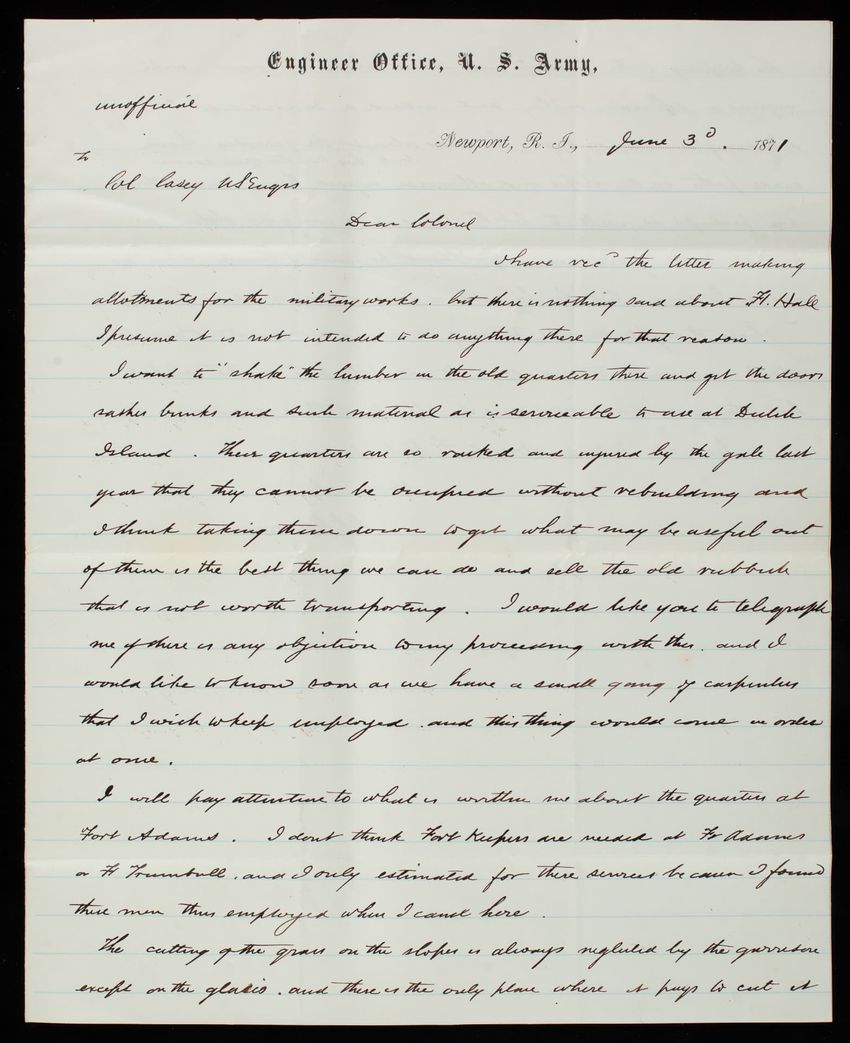 Engineer Office, U. S. Army,
unofficial
Newport, R. I., June 3d. 1871
To
Col Casey US Engrs
Dear Colonel
I have recd the letter making
allotments for the military works. but there is nothing said about Ft. Hale
I presume it is not intended to do anything there for that reason.
I want to "shake" the lumber in the old quarters there and get the doors
sashes bunks and such material as is serviceable to use at Dutch
Island. These quarters are so racked and injured by the gale last
year that they cannot be occupied without rebuilding and
I think taking them down to get what may be useful out
of them is the best thing we can do and sell the old rubbish
that is not worth transporting. I would like you to telegraph
me if there is any objection to my proceeding with this. and I
would like to know soon as we have a small gang of carpenters
that I wish to keep employed. and this thing would come in order
at once.
I will pay attention to what is written me about the quarters at
Fort Adams. I dont think Fort Keepers are needed at Ft Adams
or Ft Trumbull. and I only estimated for there services because I found
these men thus employed when I came here.
The cutting of the grass on the slopes is always neglected by the garrison
except on the glacis. and there is the only place where it pays to cut it